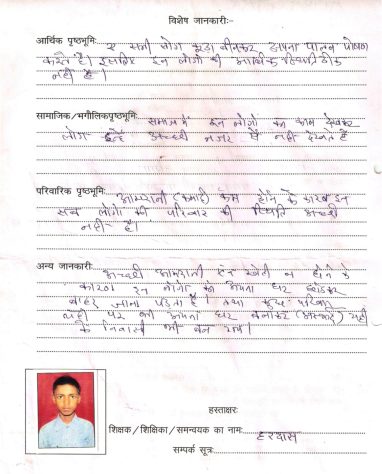 विशेष जानकारीः-
आर्थिक पृष्ठभूमिः ए सभी लोग कूड़ा बीनकर अपना पालन पोषण
करते हैं। इसलिए इन लोगो की आर्थिक स्थिति ठीक
नहीं है।
सामाजिक/भगौलिकपृष्ठभूमः समाज में इन लोगो का काम देखकर
लोग इन्हें अच्छी नजर से नहीं देखते हैं
परिवारिक पृष्ठभूमिः आमदानी (कमाई) कम होने के कारण इन
सब लोगो की परिवार की स्थिति अच्छी
नहीं है।
अन्य जानकारीः अच्छी आमदानी एवं खेती न होने के
कारण इन लोगो को अपना घर छोडकर
बाहर जाना पडता है। तथा कुछ परिवार
यही पर ही अपना घर बनाकर यही
के निवासी भी बन गये।
हस्ताक्षरः
शिक्षक/शिक्षिका/समन्वयक का नामः हरदास
सम्पर्क सूत्रः